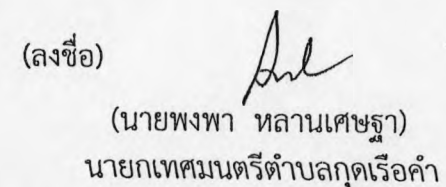 (ลงชื่อ)
(นายพงพา หลานเศษฐา)
นายกเทศมนตรีตำบลกุดเรือคำ